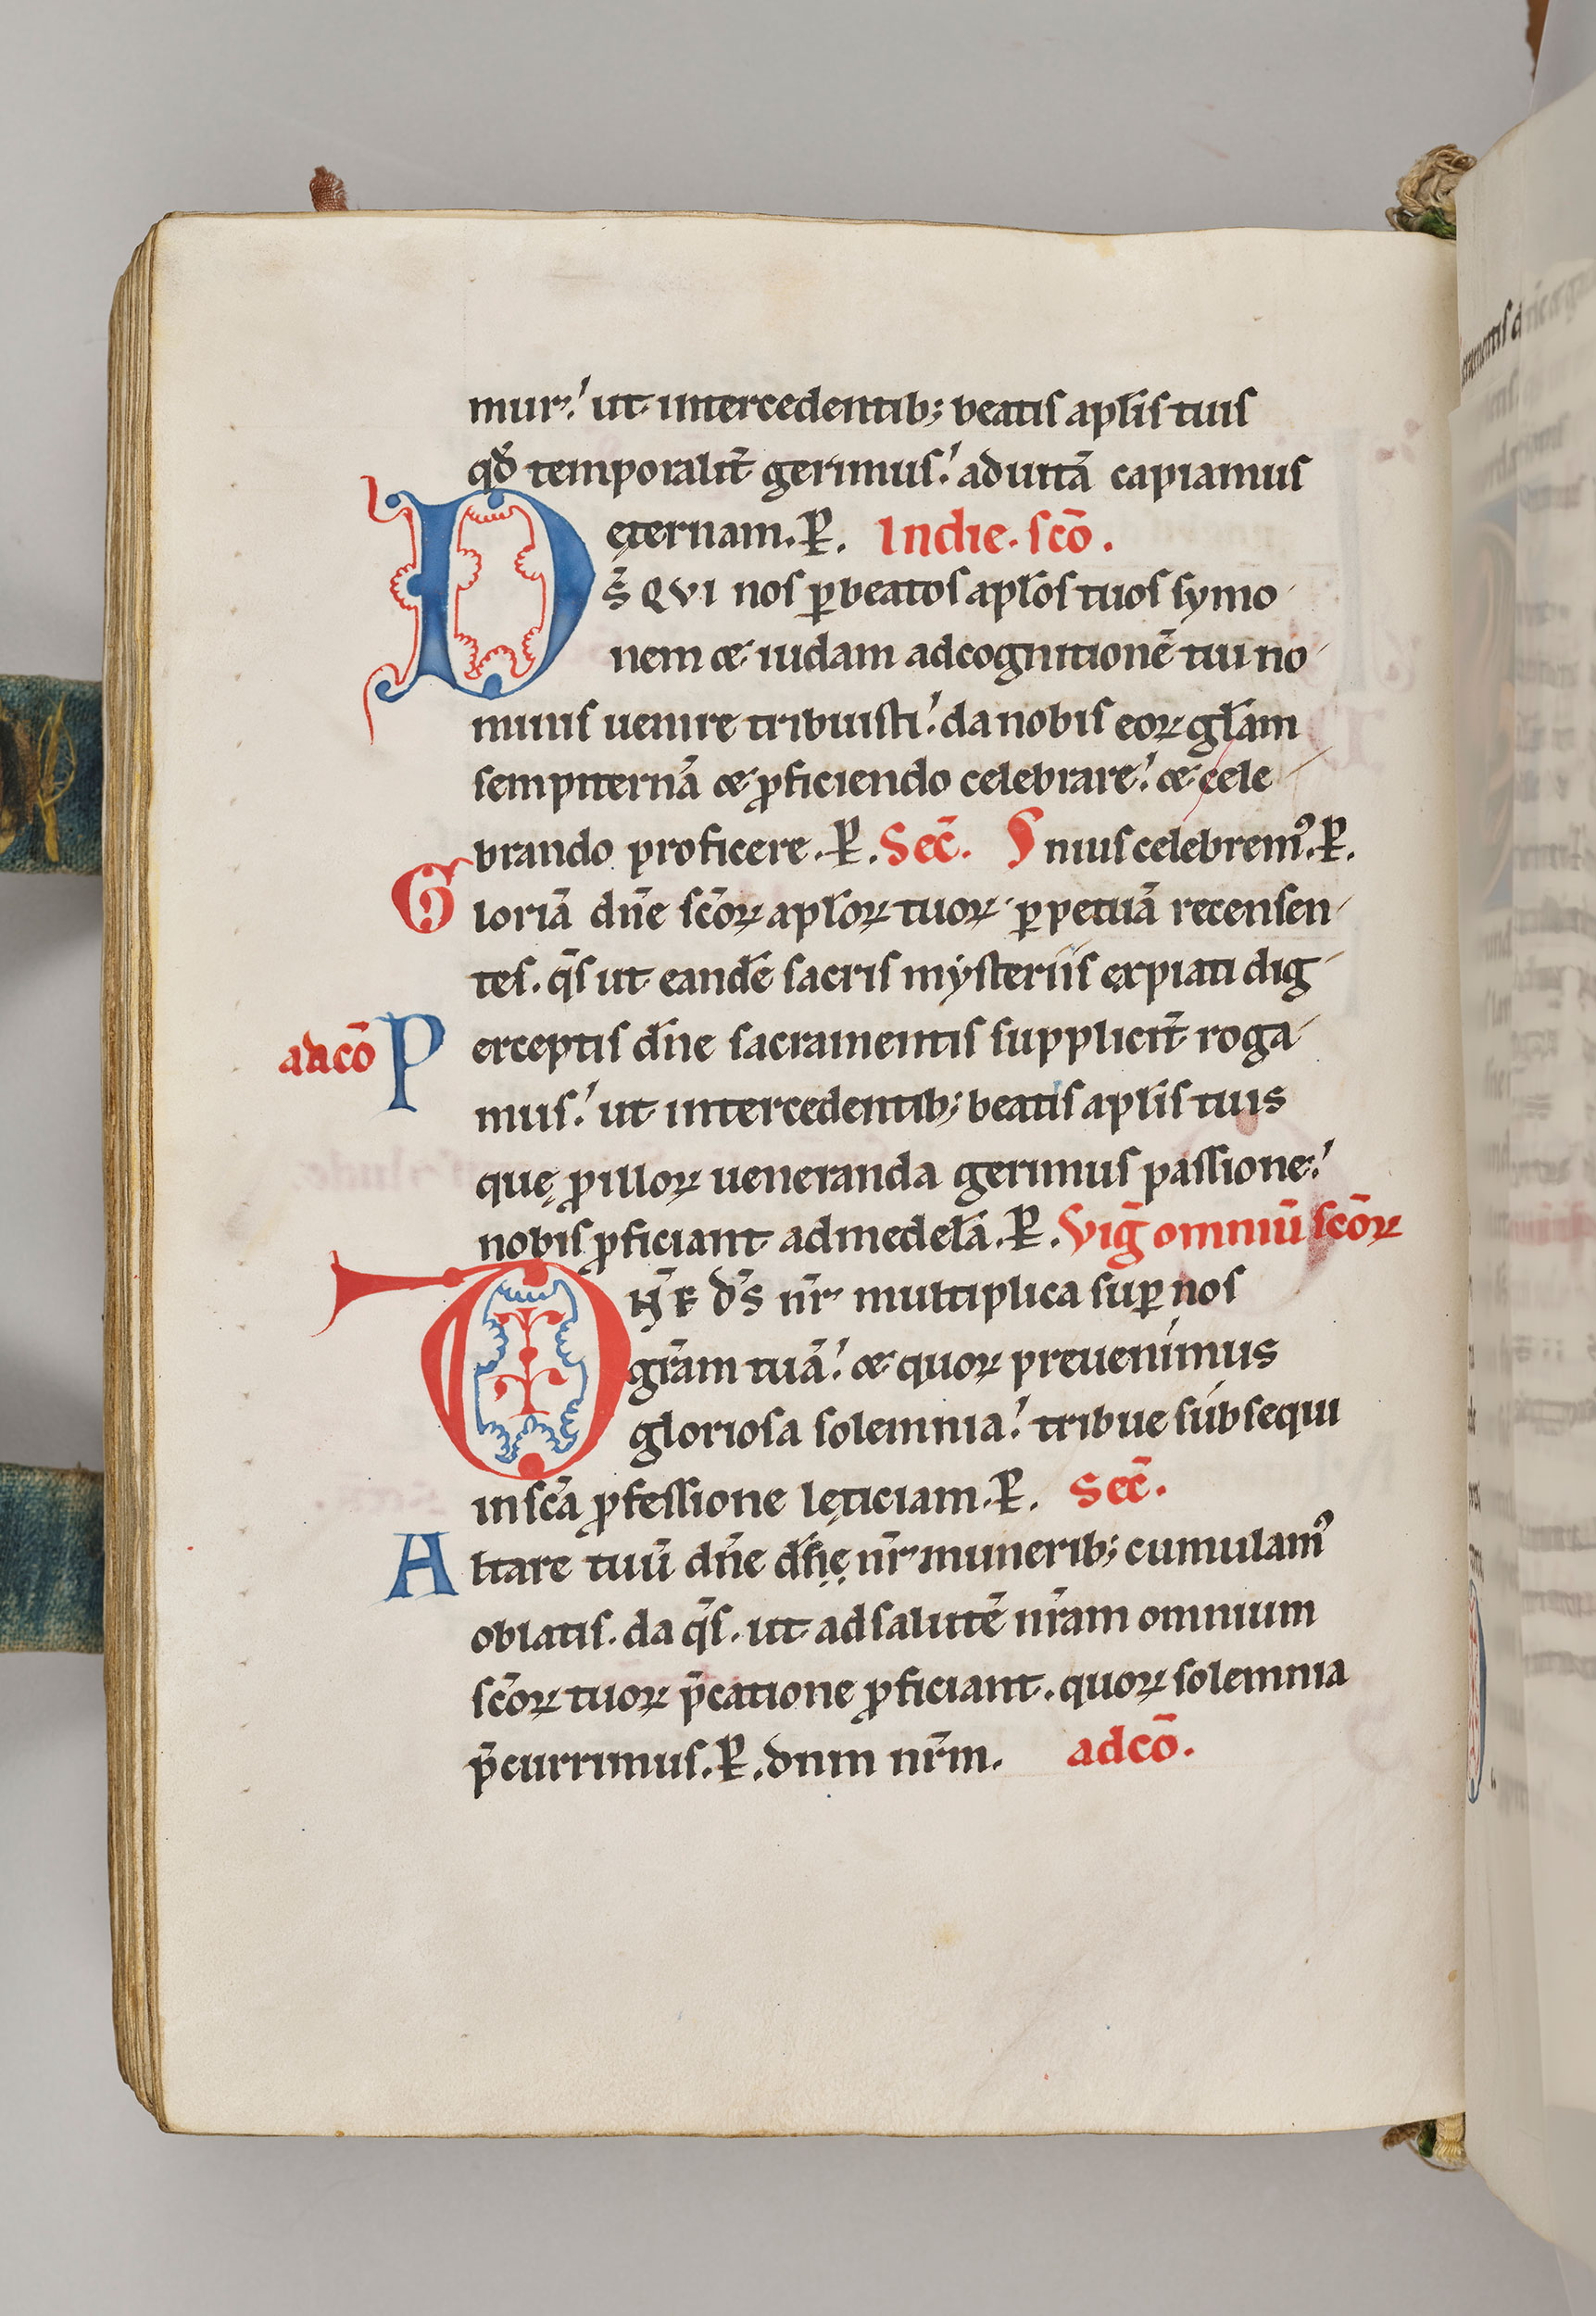 mur. ut intercedentib; beatis apl̄is tuis
qd̄ temporalit̄ gerimus. ad uitā capiamus
ęternam. P. In die. scō.
Ds̄ QVI nos ꝑ beatos apl̄os tuos symo
nem & iudam ad cognitionē tui no
minis uenire tribuisti. da nobis eoꝝ gl̄am
sempiternā & ꝓficiendo celebrare. & cele
brando proficere. P. Sec̄. niuscelebremꝰ. P.
Gloriā dn̄e sc̄oꝝ apl̄oꝝ tuoꝝ ꝑpetuā recensen
tes. q̄s ut eandē sacris mysteriis expiati dig
ad cō Perceptis dn̄e sacramentis supplicit̄ roga
mus. ut intercedentib; beatis apl̄is tuis
quę ꝓ illoꝝ ueneranda gerimus passione.
nobis ꝓficiant ad medelā. P. Viḡ omniū sc̄oꝝ
DN̄E ds̄ nr̄ multiplica suꝑ nos
gr̄am tuā. & quoꝝ preuenimus
gloriosa solemnia. tribue subsequi
in sc̄a ꝓfessione lęticiam. P. Sec̄.
Altare tuū dn̄e munerib; cumulamꝰ
oblatis. da q̄s. ut ad salutē nr̄am omnium
sc̄oꝝ tuoꝝ p̄catione ꝓficiant. quoꝝ solemnia
p̄currimus. P. dnm nr̄m. ad cō.